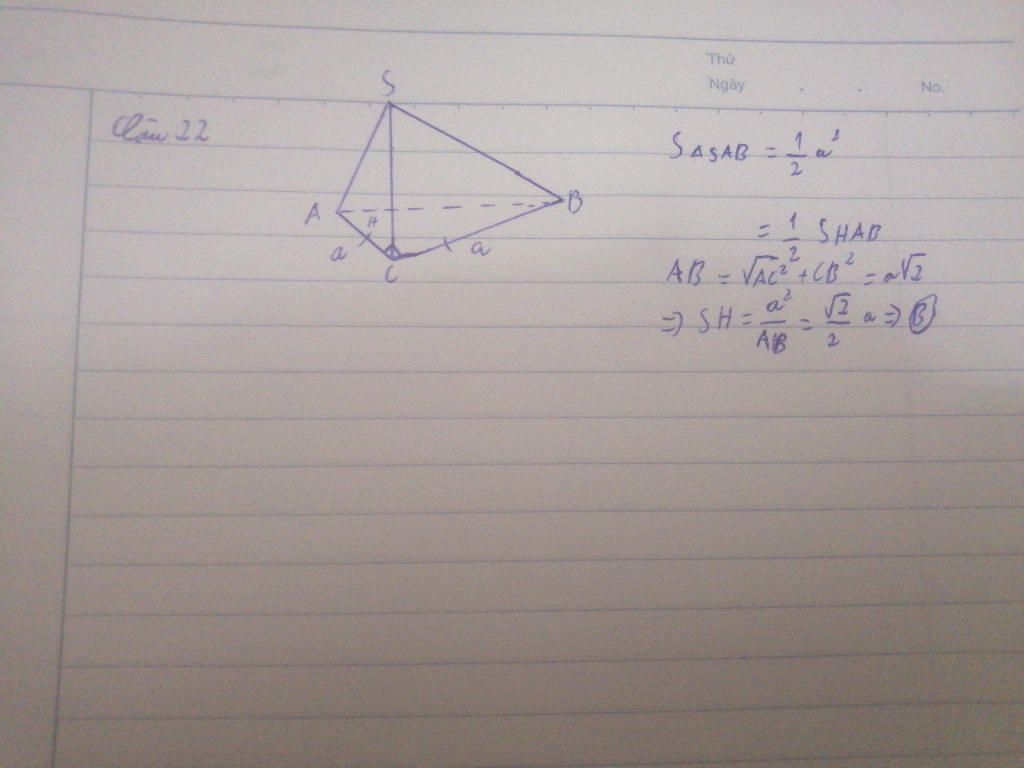 Thứ
Ngày . . No.
Câu 22
S
A
B
H
a
a
C
S △SAB = 1/2 a²
= 1/2 SHAB
AB = √AC² + CB² = a√2
=> SH = a²/AB = √2/2 a => B